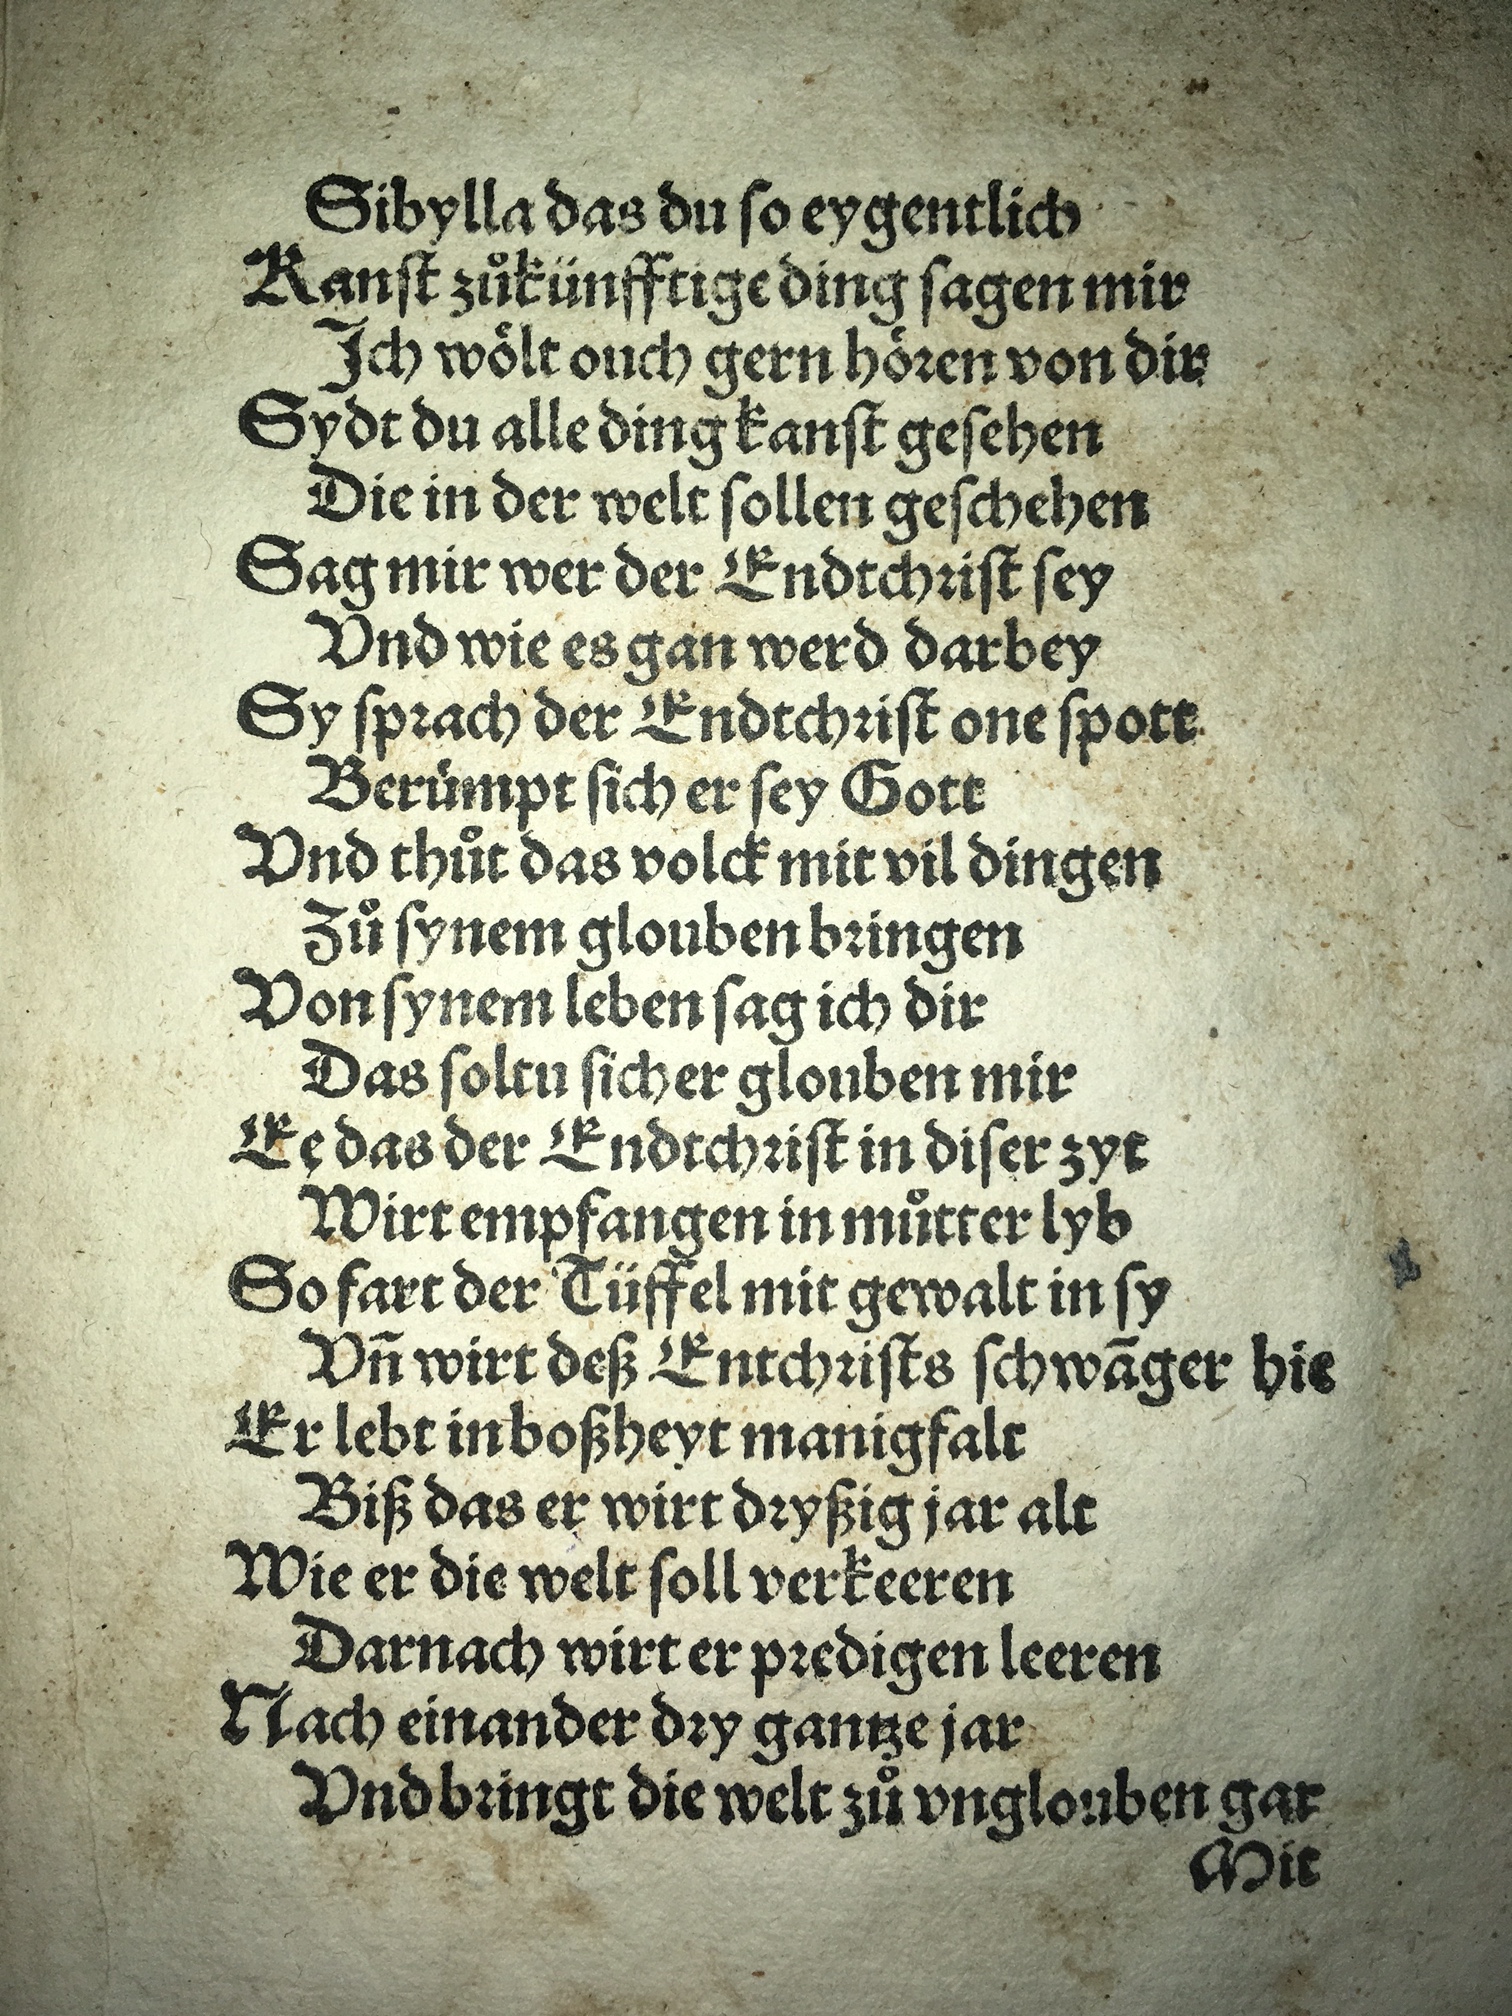 Sibylla das du ſo eygentlich
Kanſt zuͦkünfftige ding ſagen mir
Ich woͤlt ouch gern hoͤꝛen von dir
Sydt du alle ding kanſt geſehen
Die in der welt ſollen geſchehen
Sag mir wer der Endtchꝛiſt ſey
Vnd wie es gan werd darbey
Sy ſpꝛach der Endtchꝛiſt one ſpott
Beruͤmpt ſich er ſey Gott
Vnd thuͦt das volck mit vil dingen
Zuͦ ſynem glouben bꝛingen
Von ſynem leben ſag ich dir
Das ſoltu ſicher glouben mir
Ee das der Endtchꝛiſt in diſer zyt
Wirt empfangen in muͦtter lyb
So fart der Tüffel mit gewalt in ſy
Vn̄ wirt deß Entchꝛiſts ſchwāger hie
Er lebt in boßheyt manigfalt
Biß das er wirt dꝛyßig jar alt
Wie er die welt ſoll verkeeren
Darnach wirt er pꝛedigen leeren
Nach einander dꝛy gantze jar
Vnd bꝛingt die welt zuͦ vnglouben gar
Mit